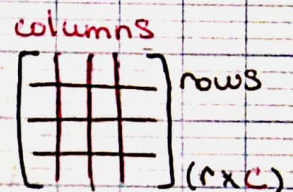 columns
rows
(r x c)